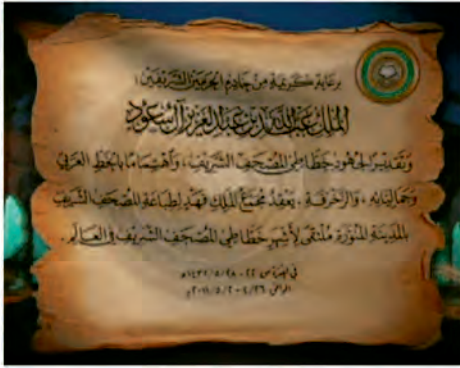 برعاية كريمة من خادم الحرمين الشريفين:
الملك عبدالله بن عبدالعزيز آل سعود
وتقديرا لجهود خطاطي المصحف الشريف، واهتماما بالخط العربي
وجمالياته، والزخرفة، يعقد مجمع الملك فهد لطباعة المصحف الشريف
بالمدينة المنورة ملتقى لأشهر خطاطي المصحف الشريف في العالم.
في الفترة من ٢٢ - ٢٨/٥/١٤٣٢هـ
الموافق ٢٦/٤-٢/٥/٢٠١١م